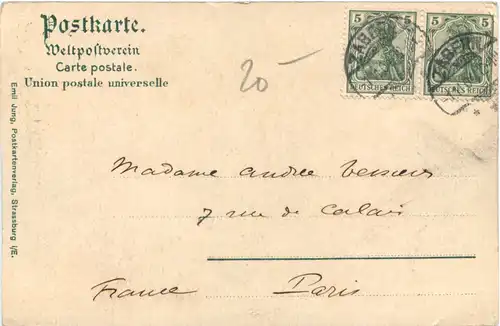 Postkarte.
Weltpostverein
Carte postale.
Union postale universelle
Emil Jung, Postkartenverlag, Strassburg i/E.
20-
5 5
DEUTSCHES REICH
5 5
DEUTSCHES REICH
ZABERN
Madame andrée
7 rue de Calais
France Paris